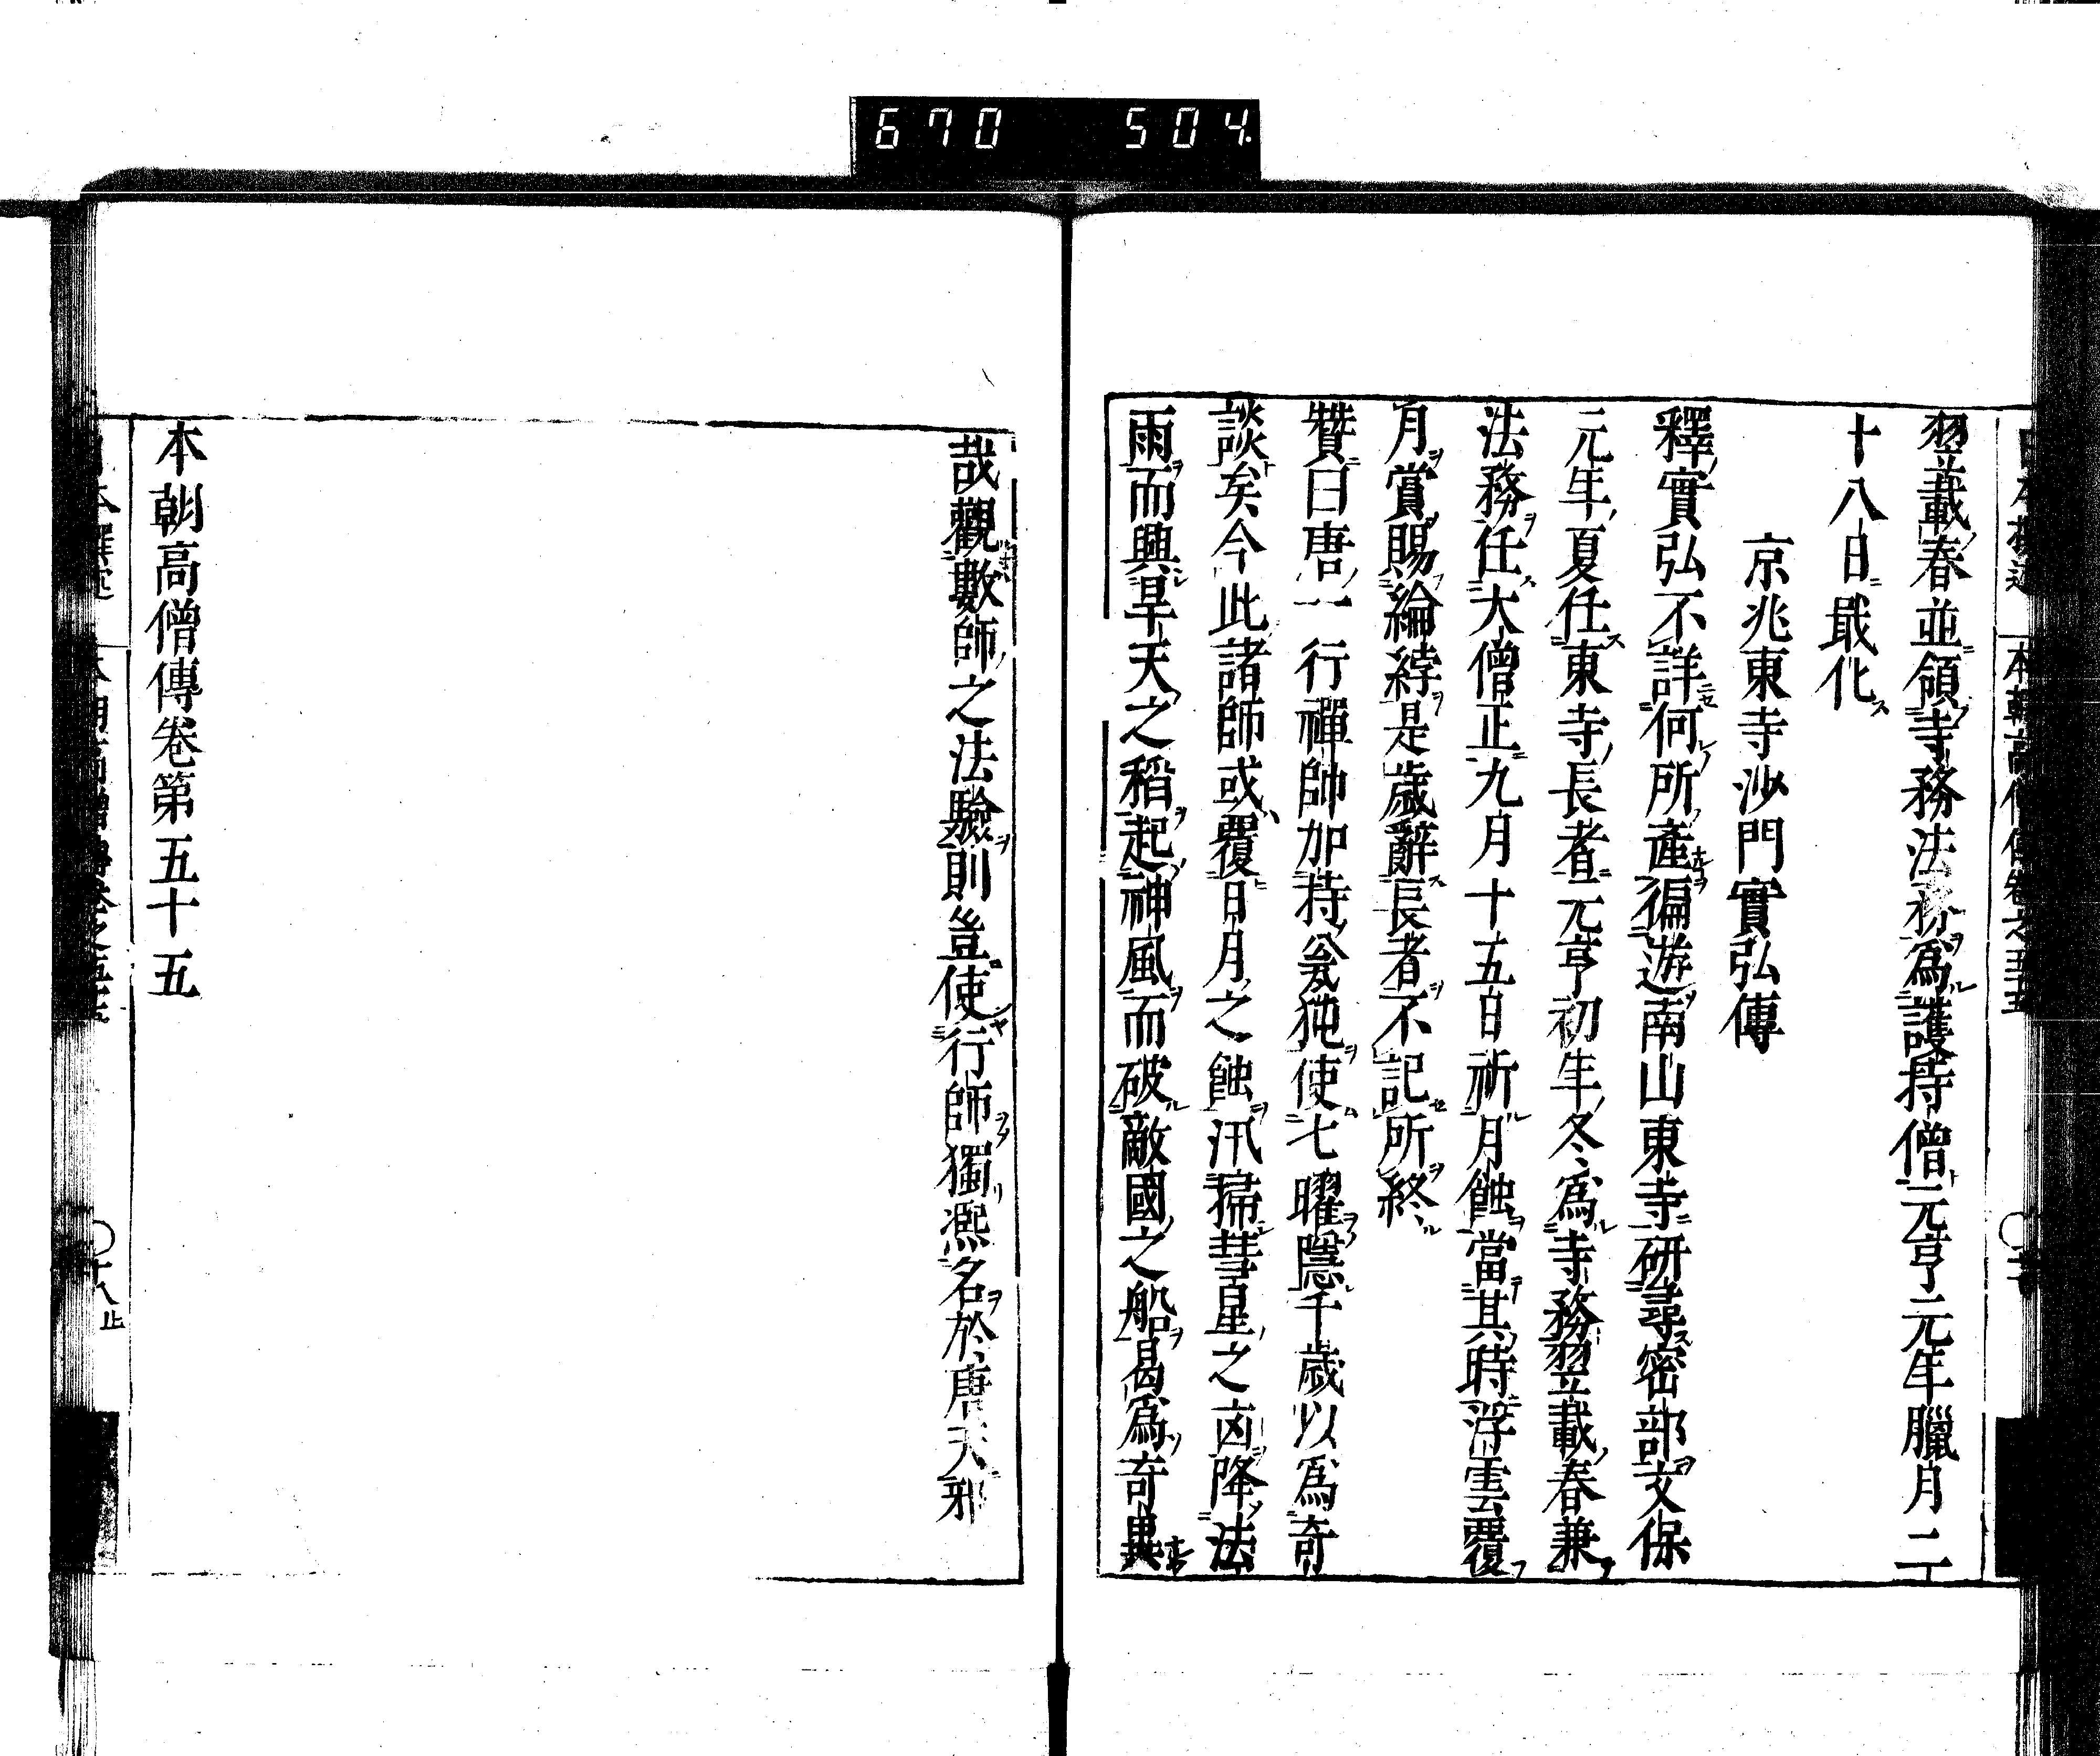 670 504.
翌載春並領寺務法務爲護持僧元亨元年臘月二
十八日戢化
京兆東寺沙門實弘傳
釋實弘不詳何所產徧遊南山東寺研尋密部文保
元年夏任東寺長者元亨初年冬爲寺務翌載春兼
法務任大僧正九月十五日祈月蝕當其時浮雲覆
月賞賜綸綍是歲辭長者不記所終
贊曰唐一行禪師加持瓮㹠使七曜隱千歲以爲奇
談矣今此諸師或覆日月之蝕汛掃彗星之凶降法
雨而興旱天之稻起神風而破敵國之船曷爲奇異
哉觀數師之法驗則豈使行師獨凞名於唐天邪
本朝高僧傳卷第五十五